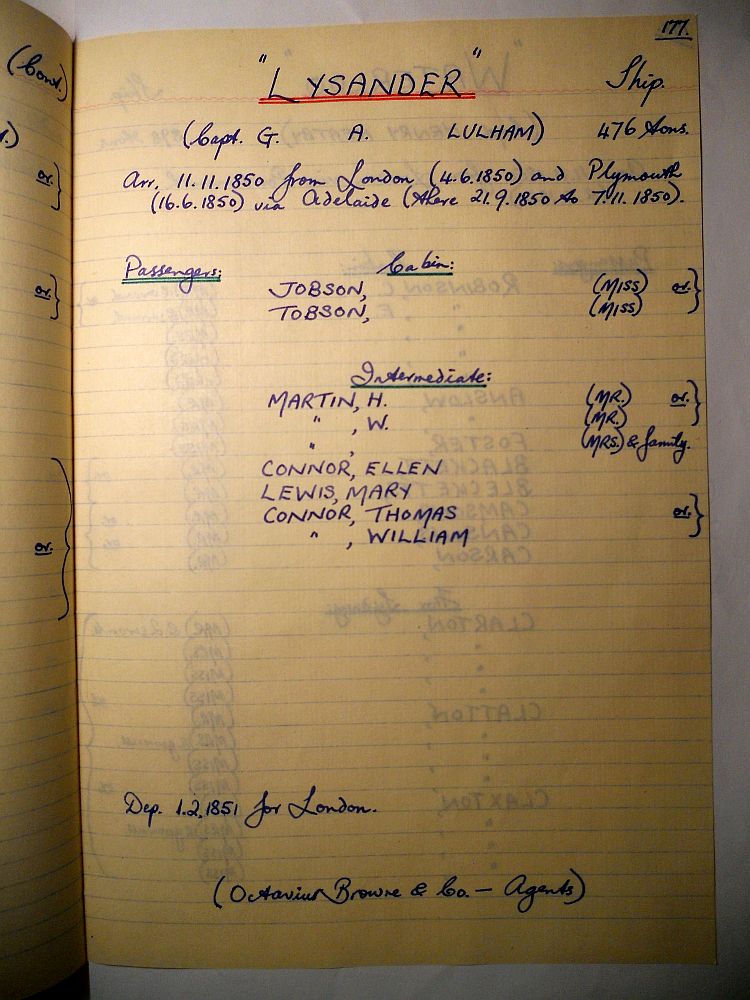 177.
"LYSANDER" Ship.
(Capt. G. A. LULHAM) 476 tons.
Arr. 11.11.1850 from London (4.6.1850) and Plymouth
(16.6.1850) via Adelaide (there 21.9.1850 to 7.11.1850).
Passengers: Cabin:
JOBSON, (MISS) or.
TOBSON, (MISS)
Intermediate:
MARTIN, H. (MR.) or.
" , W. (MR.)
" , (MRS.) & family.
CONNOR, ELLEN
LEWIS, MARY
CONNOR, THOMAS or.
" , WILLIAM
Dep. 1.2.1851 for London.
(Octavius Browne & Co. — Agents)
(Cont.)
or.
or.
or.